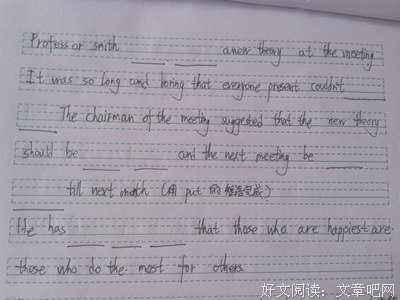 Professor smith ___ ___ a new theory at the meeting
It was so long and boring that everyone present couldn't ___
___ The chairman of the meeting suggested that the new theory
should be ___ ___ and the next meeting be ___
___ till next month (用 put 的短语完成)
He has ___ ___ ___ that those who are happiest are
those who do the most for others
好文阅读：文章吧网